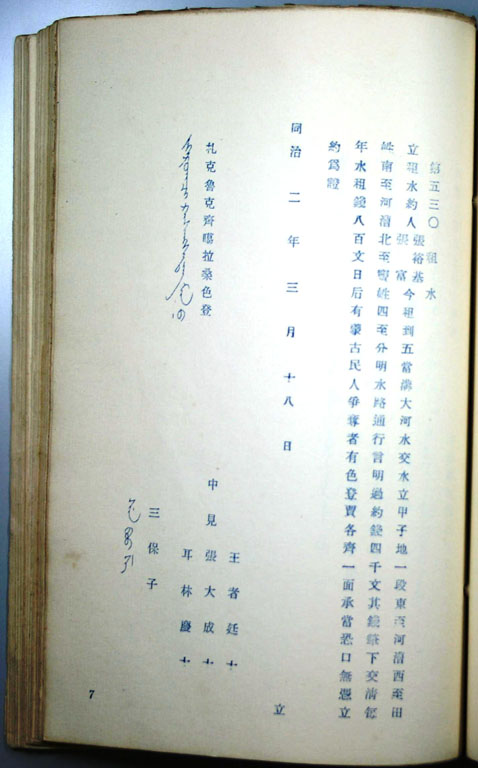 第五三〇 租水
立租水約人張裕基
張富
今租到五當溝大河水交水立甲子地一段東至河漕西至田
姓南至河漕北至姓四至分明水路通行言明過約錢四千文其錢筆下交清每
年水租錢八百文日后有蒙古民人爭奪者有色登賣各齊一面承當恐口無憑立
約爲證
同治二年三月十八日 立
王者廷十
中見張大成十
耳林慶十
札克魯克齊噶拉桑色登
三保子
7